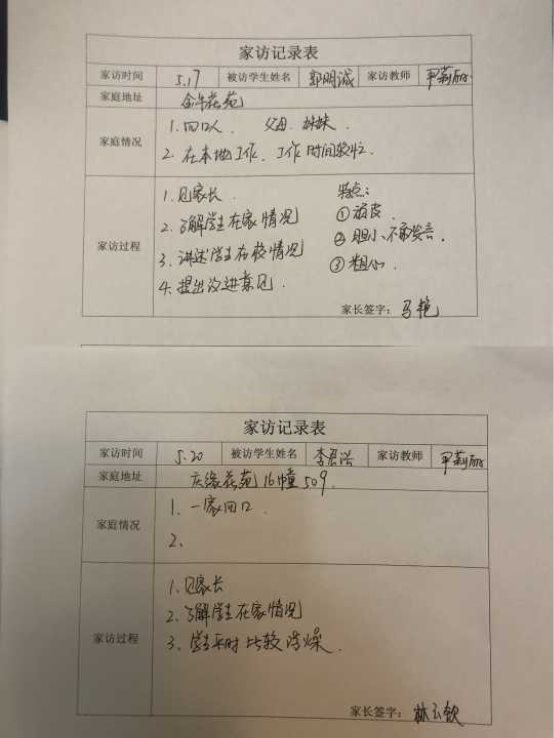 家访记录表
家访时间 5.17 被访学生姓名 郭明诚 家访教师
家庭地址 金牛花苑
家庭情况 1. 四口人. 父母. 姊妹.
2. 在本地工作. 工作时间较忙.
家访过程 1. 见家长. 特点:
2. 了解学生在家情况 ① 顽皮.
3. 讲述学生在校情况 ② 胆小、不敢发言.
4. 提出改进意见. ③ 粗心.
家长签字: 马艳
家访记录表
家访时间 5.20 被访学生姓名 李君浩 家访教师
家庭地址 庆缘花苑16幢509.
家庭情况 1. 一家四口.
2.
家访过程 1. 见家长
2. 了解学生在家情况
3. 学生平时比较浮燥.
家长签字: 林云钦